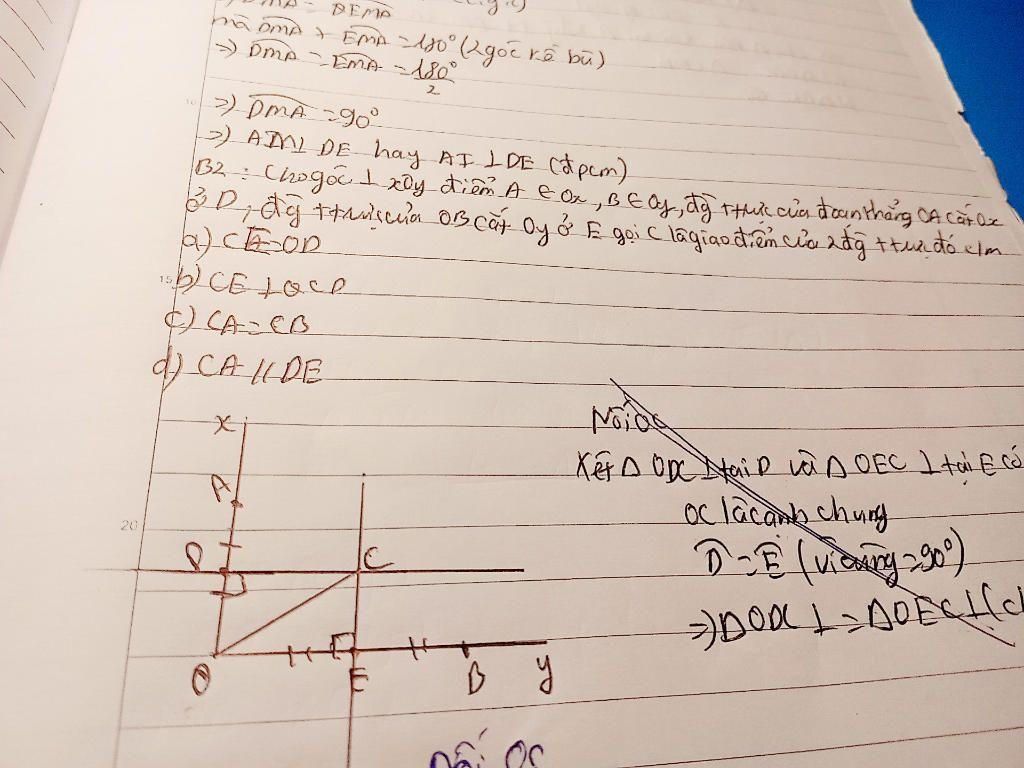 DMA = DEMA
mà DMA + EMA = 180° (2 góc kề bù)
=> DMA = EMA = 180°
2
=> DMA = 90°
=> AM ⊥ DE hay AI ⊥ DE (đpcm)
B2: Cho góc ⊥ xOy điểm A ∈ Ox, B ∈ Oy, đg ttrực của đoạn thẳng OA cắt Ox
ở D, đg ttrực của OB cắt Oy ở E gọi C là giao điểm của 2 đg ttrực đó c/m
a) CE = OD
b) CE ⊥ CD
c) CA = CB
d) CA // DE
x
A
D
C
O
E
B
y
20
15
Nối OC
Xét Δ ODC ⊥ tại D và Δ OEC ⊥ tại E có
OC là cạnh chung
D = E (vì cùng = 90°)
=> Δ ODC ⊥ = Δ OEC ⊥ (c
nối OC